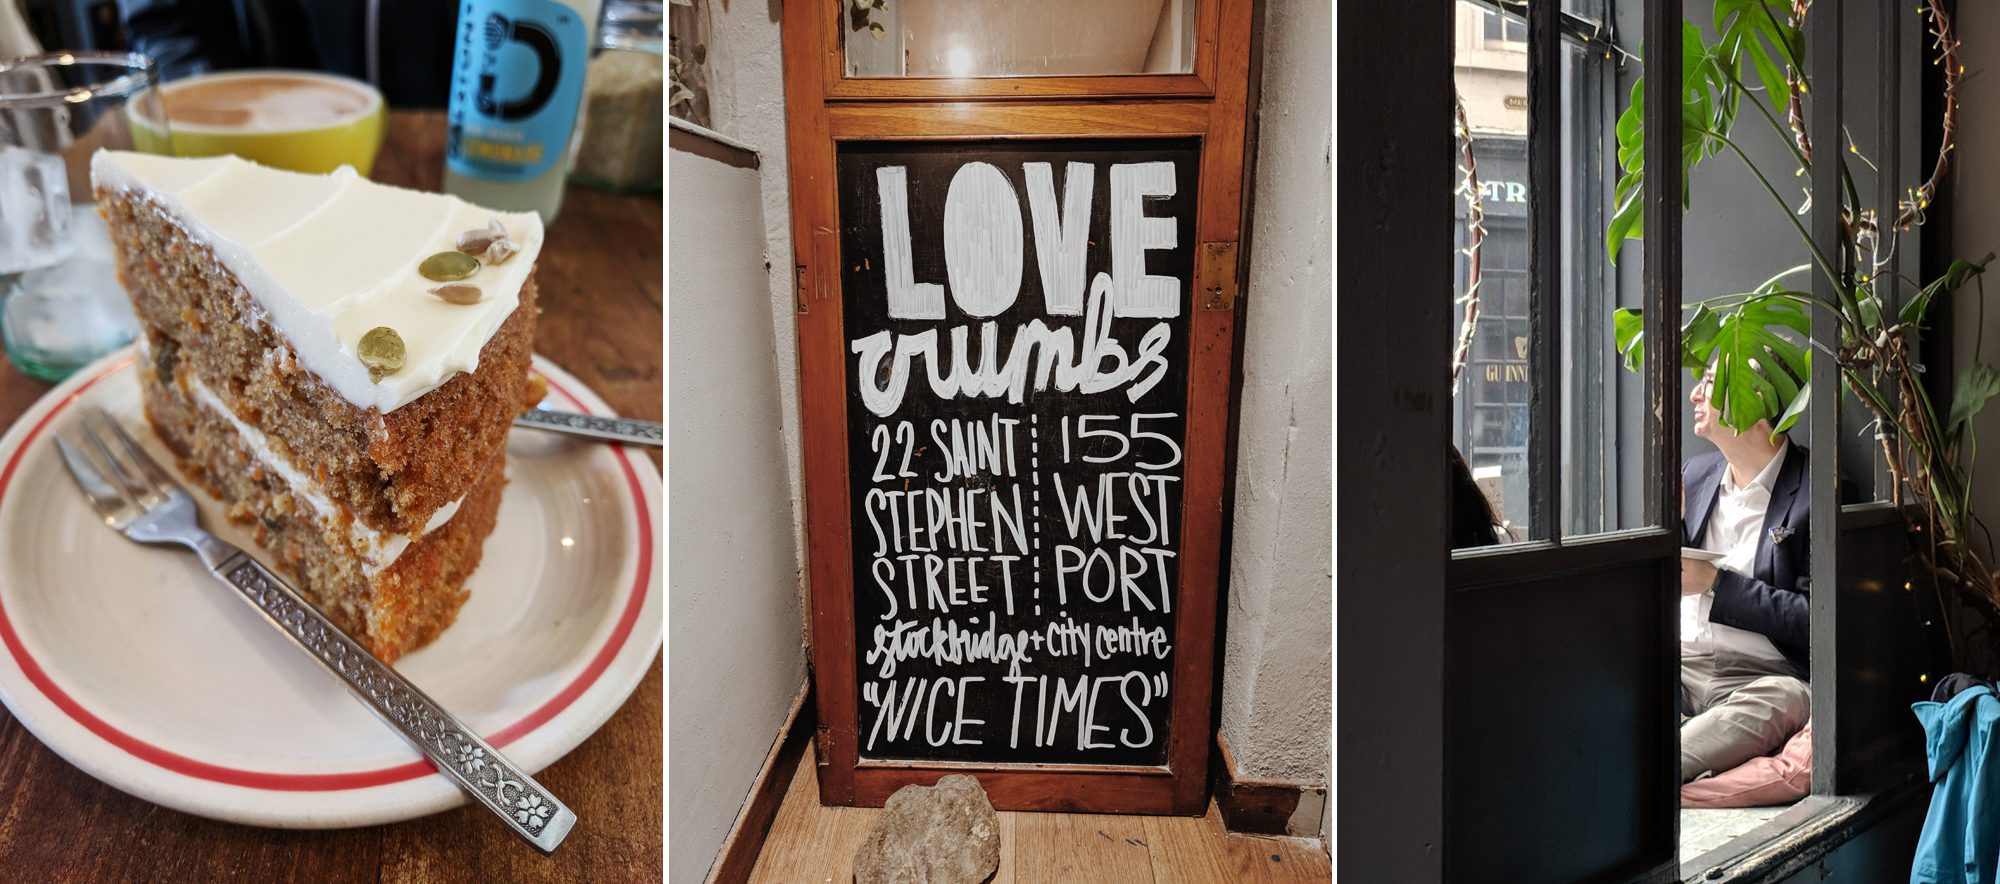 LEMONADE
LOVE
crumbs
22 SAINT
STEPHEN
STREET
155
WEST
PORT
stockbridge + city centre
"NICE TIMES"